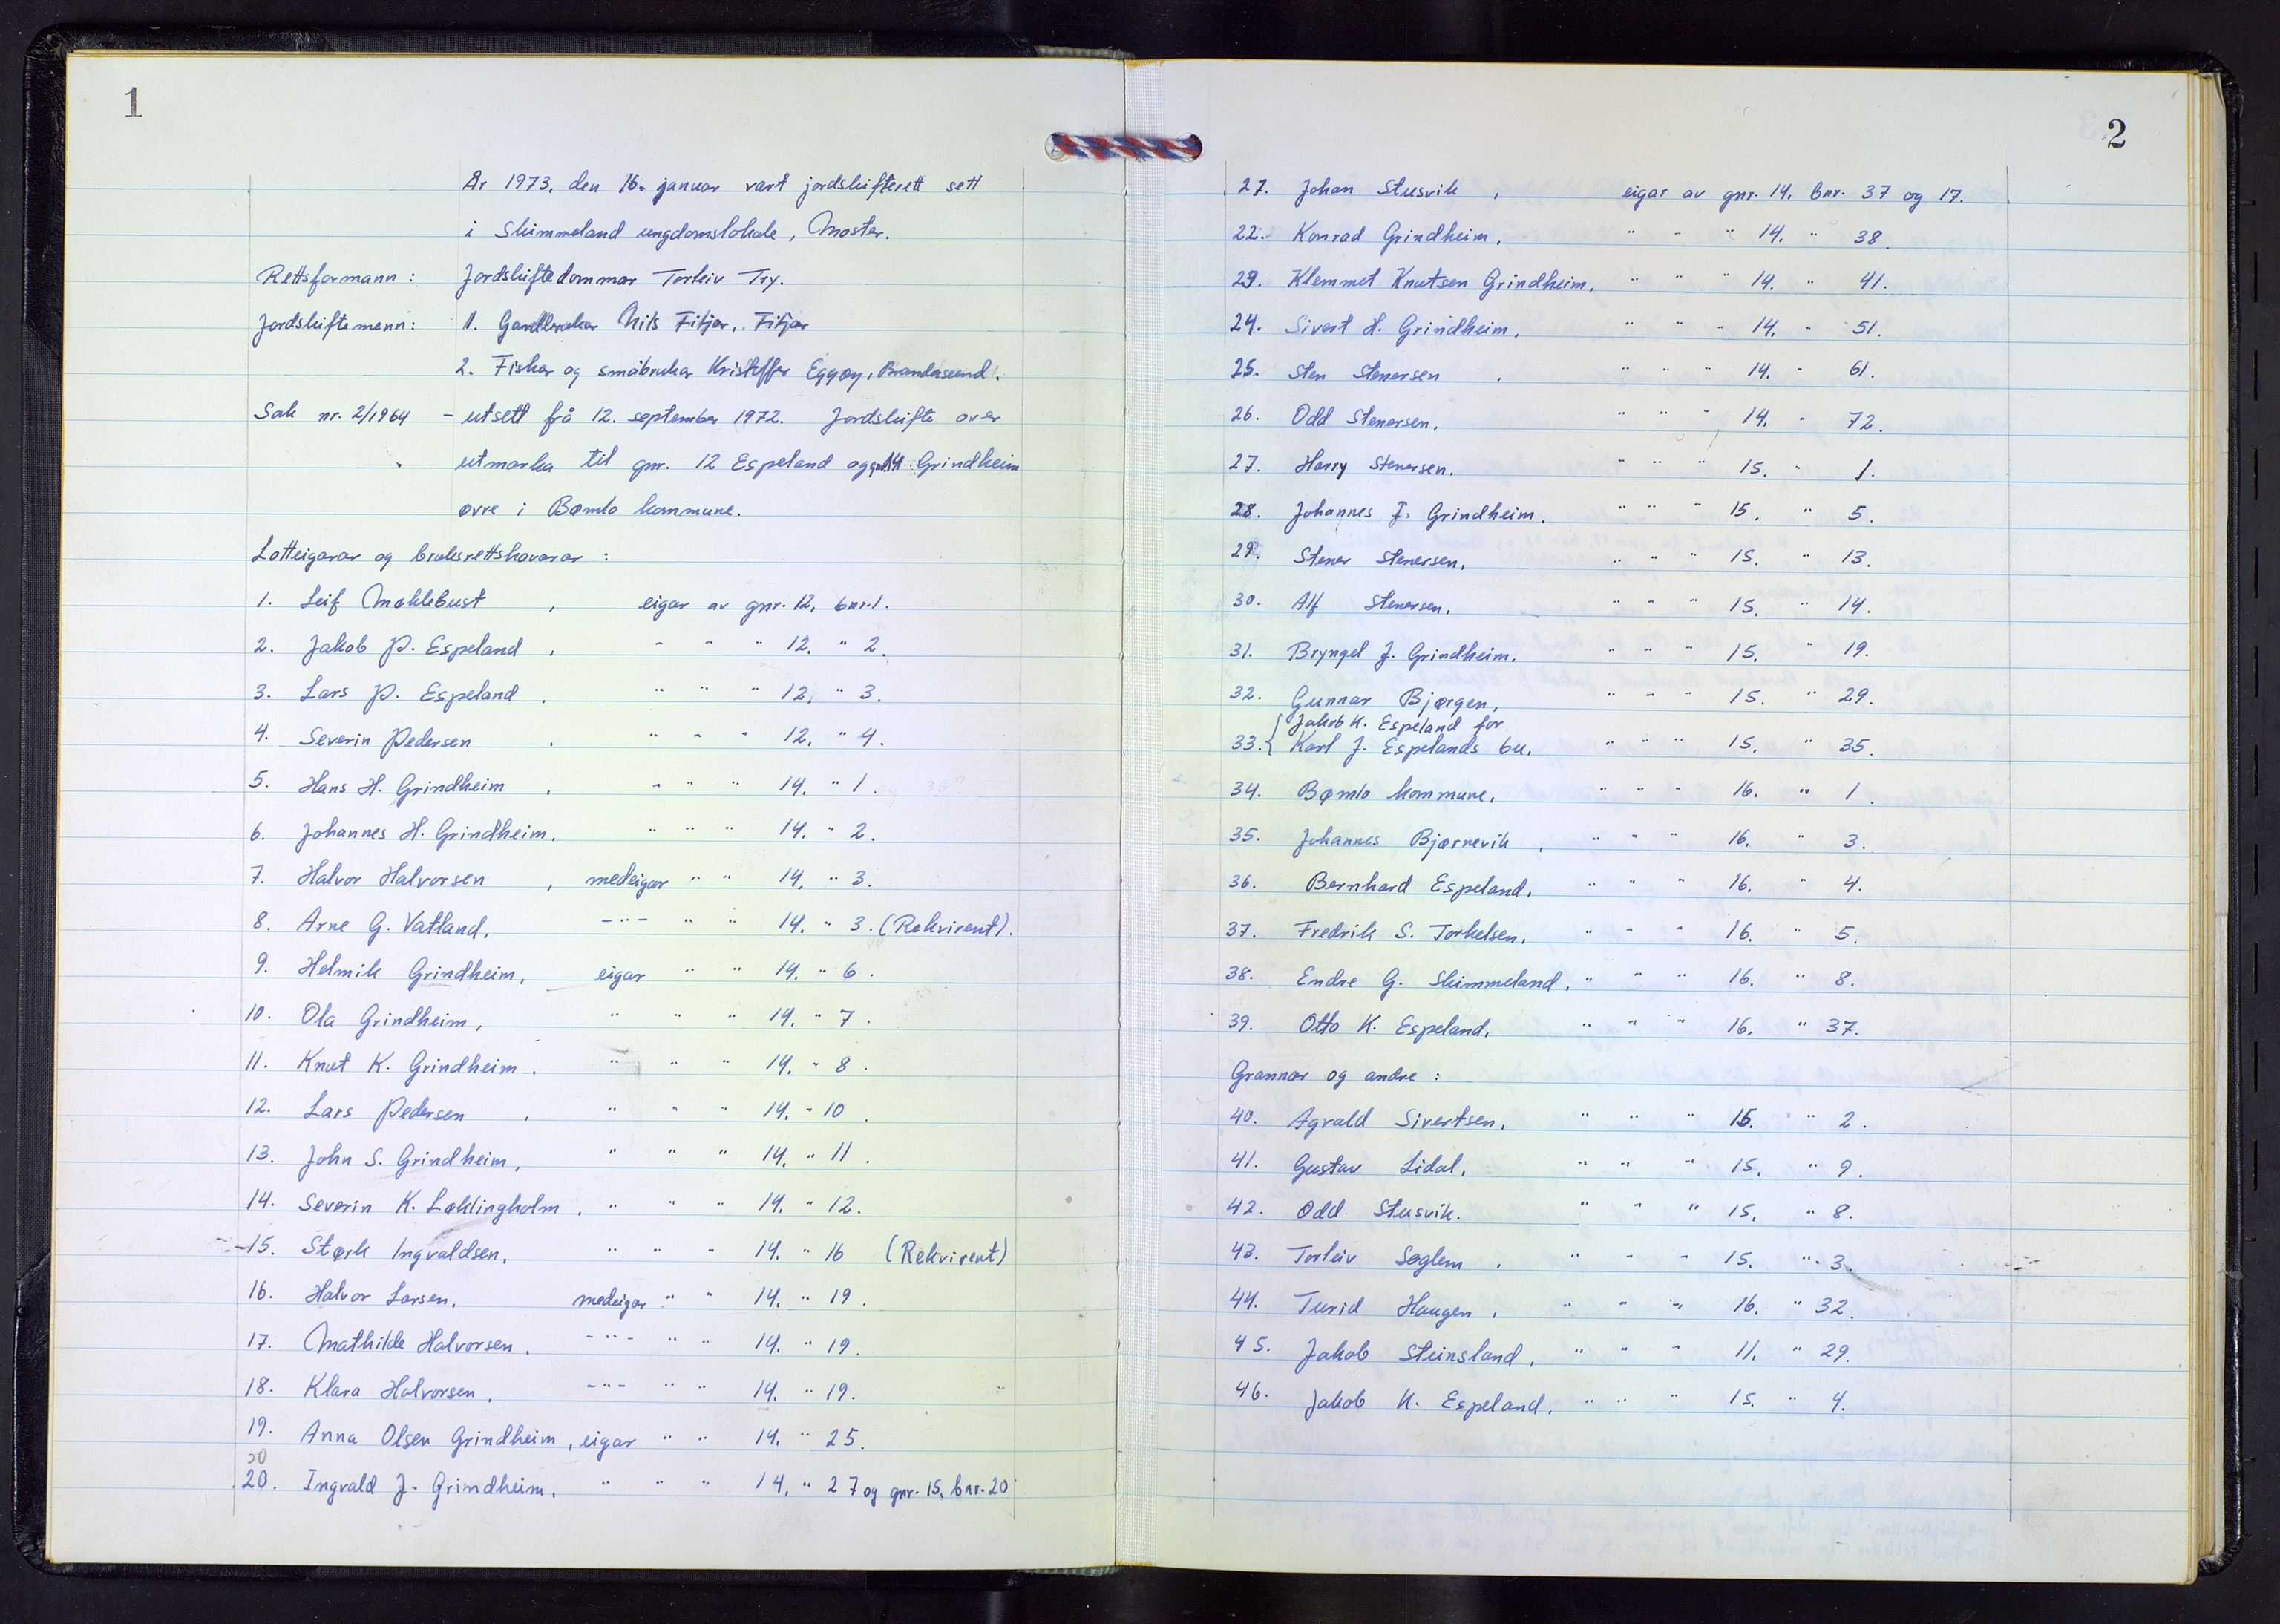 1
År 1973, den 16. januar vart jordskifterett sett
i Skimmeland ungdomslokale, Moster.
Rettsformann: Jordskiftedommar Torleiv Try.
Jordskiftemenn: 1. Gardbrukar Nils Fitjar, Fitjar
2. Fiskar og småbrukar Kristoffer Eggøy, Brandasund.
Sak nr. 2/1964 - utsett frå 12. september 1972. Jordskifte over
utmarka til gnr. 12 Espeland og gnr. 14 Grindheim
øvre i Bømlo kommune.
Lotteigarar og bruksrettshavarar:
1. Leif Møklebust, eigar av gnr. 12, bnr. 1.
2. Jakob P. Espeland, " " " 12, " 2.
3. Lars P. Espeland, " " " 12, " 3.
4. Severin Pedersen, " " " 12, " 4.
5. Hans H. Grindheim, " " " 14, " 1.
6. Johannes H. Grindheim, " " " 14, " 2.
7. Halvor Halvorsen, medeigar " " 14, " 3.
8. Arne G. Vatland, -"- " " 14, " 3. (Rekvirent).
9. Helmik Grindheim, eigar " " 14, " 6.
10. Ola Grindheim, " " " 14, " 7.
11. Knut K. Grindheim, " " " 14, " 8.
12. Lars Pedersen, " " " 14, " 10.
13. John S. Grindheim, " " " 14, " 11.
14. Severin K. Løklingholm, " " " 14, " 12.
15. Størk Ingvaldsen, " " " 14, " 16 (Rekvirent)
16. Halvor Larsen, medeigar " " 14, " 19.
17. Mathilde Halvorsen, -"- " " 14, " 19.
18. Klara Halvorsen, -"- " " 14, " 19.
19. Anna Olsen Grindheim, eigar " " 14, " 25.
20. Ingvald J. Grindheim, " " " 14, " 27 og gnr. 15, bnr. 20
2
21. Johan Stusvik, eigar av gnr. 14, bnr. 37 og 17.
22. Konrad Grindheim, " " " 14, " 38.
23. Klemmet Knutsen Grindheim, " " " 14, " 41.
24. Sivert H. Grindheim, " " " 14, " 51.
25. Sten Stenersen, " " " 14, " 61.
26. Odd Stenersen, " " " 14, " 72.
27. Harry Stenersen, " " " 15, " 1.
28. Johannes J. Grindheim, " " " 15, " 5.
29. Stener Stenersen, " " " 15, " 13.
30. Alf Stenersen, " " " 15, " 14.
31. Bryngel J. Grindheim, " " " 15, " 19.
32. Gunnar Bjørgen, " " " 15, " 29.
Jakob K. Espeland for
33. Karl J. Espelands bu, " " " 15, " 35.
34. Bømlo kommune, " " " 16, " 1.
35. Johannes Bjørnevik, " " " 16, " 3.
36. Bernhard Espeland, " " " 16, " 4.
37. Fredrik S. Torkelsen, " " " 16, " 5.
38. Endre G. Skimmeland, " " " 16, " 8.
39. Otto K. Espeland, " " " 16, " 37.
Grannar og andre:
40. Agvald Sivertsen, " " " 15, " 2.
41. Gustav Lidal, " " " 15, " 9.
42. Odd Stusvik, " " " 15, " 8.
43. Torleiv Søglem, " " " 15, " 3.
44. Turid Haugen, " " " 16, " 32.
45. Jakob Steinsland, " " " 11, " 29.
46. Jakob K. Espeland, " " " 15, " 4.